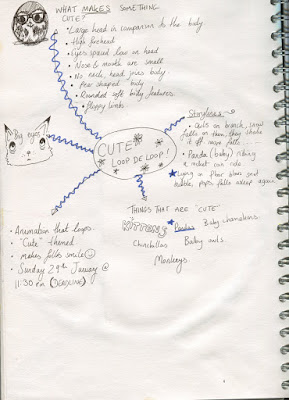 WHAT MAKES SOMETHING
CUTE?
• Large head in comparison to the body
• High forehead
• Eyes spaced low in head
• Nose & mouth are small
• No neck, head joins body
• Pear shaped body
• Rounded soft body features
• Floppy limbs
Big eyes
CUTE
LOOP DE LOOP!
Storylines
• Owls on branch, snow
falls on them, they shake
it off more falls....
• Panda (baby) riding
a robot coin ride
Lying on floor blows snot
bubble, pops falls asleep again
THINGS THAT ARE 'CUTE'
KITTENS
Pandas
Baby chameleons
Chinchillas
Baby owls
Monkeys
• Animation that loops
• 'Cute' themed
• makes folks smile
• Sunday 29th January @
11:30 pm (DEADLINE)